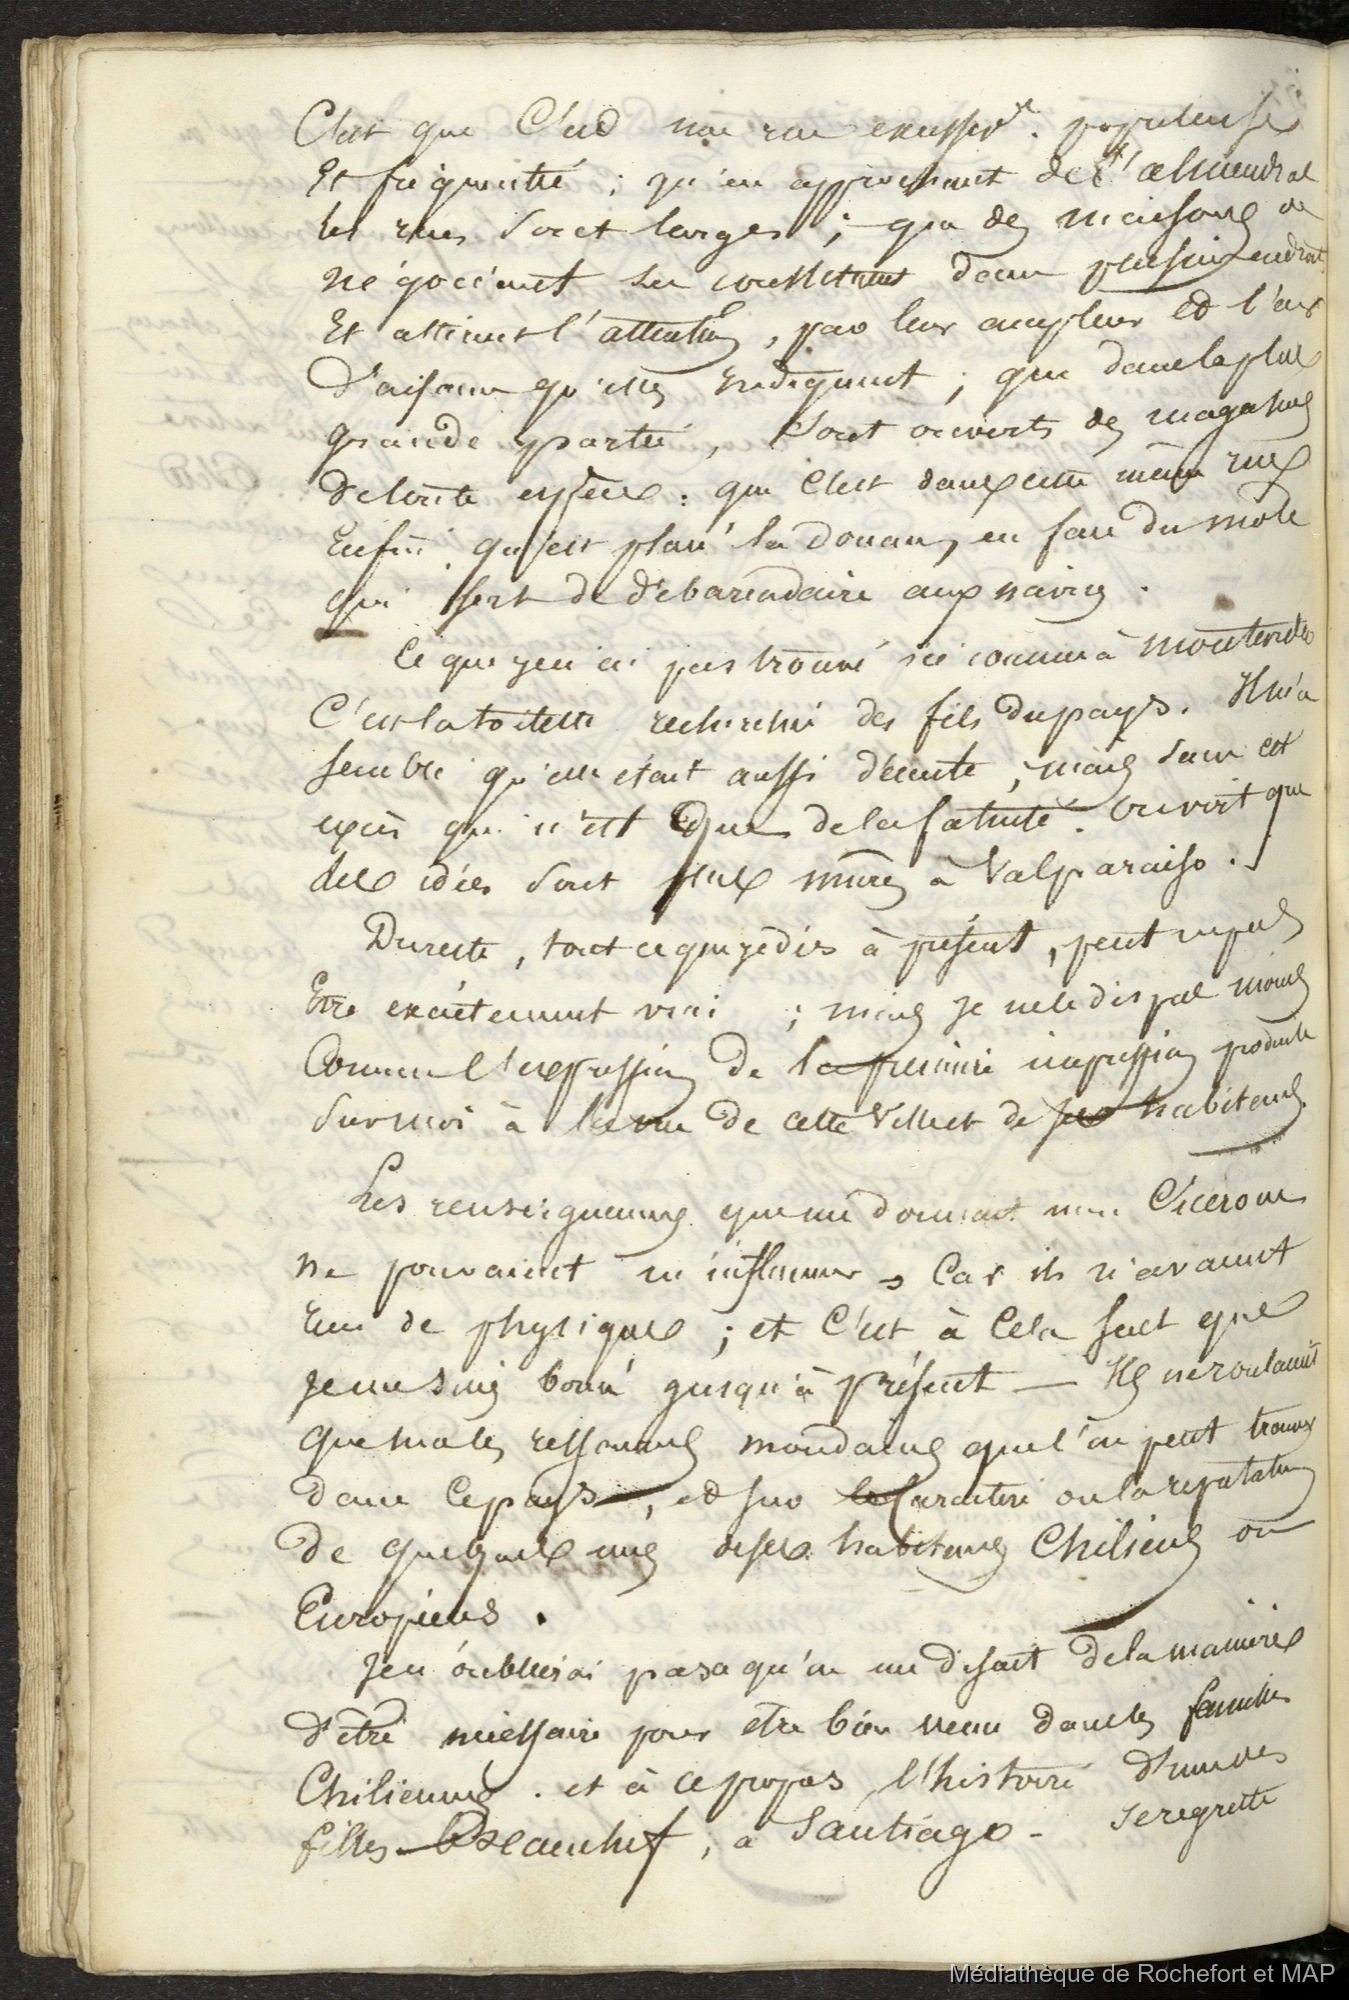 C'est que c'est une rue excessivt. populeuse
Et fréquentée ; qu'en approchant de l'almendral
les rues sont larges ; que des maisons de
négociant se construisent dans plusieurs endroits
Et attirent l'attention, par leur ampleur et l'air
D'aisance qu'elles indiquent ; que dans la plus
grande partie, sont ouverts des magasins
de toute espèce : que c'est dans cette même rue
Enfin, qu'est placé la Douane, en face du môle
qui sert de débarcadaire aux navires.
Ce que je n'ai pas trouvé ici comme à Montevideo
C'est la toilette recherchée des fils du pays. Il m'a
semblé qu'elle était aussi décente, mais sans cet
excès qui n'est que de la fatuité. On voit que
les idées sont plus mûres à Valparaiso.
Du reste, tout ce que je dis à présent, peut n'être pas
Etre exactement vrai ; mais je ne le dis pas moins
Comme l'expression de la première impression produite
Sur moi à la vue de cette Ville et de ses habitans.
Les renseignemens que me donnait mon Cicerone
ne pouvaient m'influencer, Car ils n'avaient
rien de physique ; et c'est à cela seul que
je me suis borné jusqu'à présent — Ils ne roulaient
que sur les ressources mondaines que l'on peut trouver
dans ce pays, et sur le caractère ou la reputation
de quelques uns de ses habitans Chiliens ou
Européens.
Je n'oublierai pas ce qu'on me disait de la manière
D'être nécessaire pour etre bien venu dans les familles
Chiliennes. et à ce propos l'histoire d'une des
filles Beauchef, à Santiago - Je regrette
Médiathèque de Rochefort et MAP